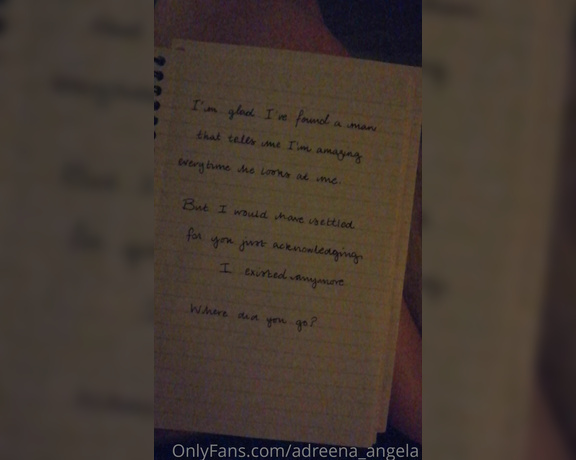 I'm glad I've found a man
that tells me I'm amazing
everytime he looks at me.
But I would have settled
for you just acknowledging
I existed anymore
Where did you go?
OnlyFans.com/adreena_angela